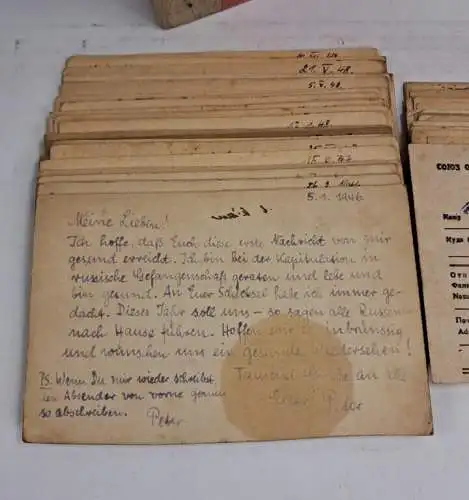 21. V. 48.
5. V. 48.
5. 1. 1946.
Meine Lieben!
Ich hoffe, daß Euch diese erste Nachricht von mir
gesund erreicht. Ich bin bei der Kapitulation in
russische Gefangenschaft geraten und lebe und
bin gesund. An Euer Schicksal habe ich immer ge-
dacht. Dieses Jahr soll uns – so sagen alle Russen
nach Hause führen. Hoffen wir inbrünstig
und wünschen uns ein gesundes Wiedersehen!
Tausend an alle
Euer Peter
PS: Wenn Du mir wieder schreibst,
den Absender von vorne genau
so abschreiben. Peter
СОЮЗ О